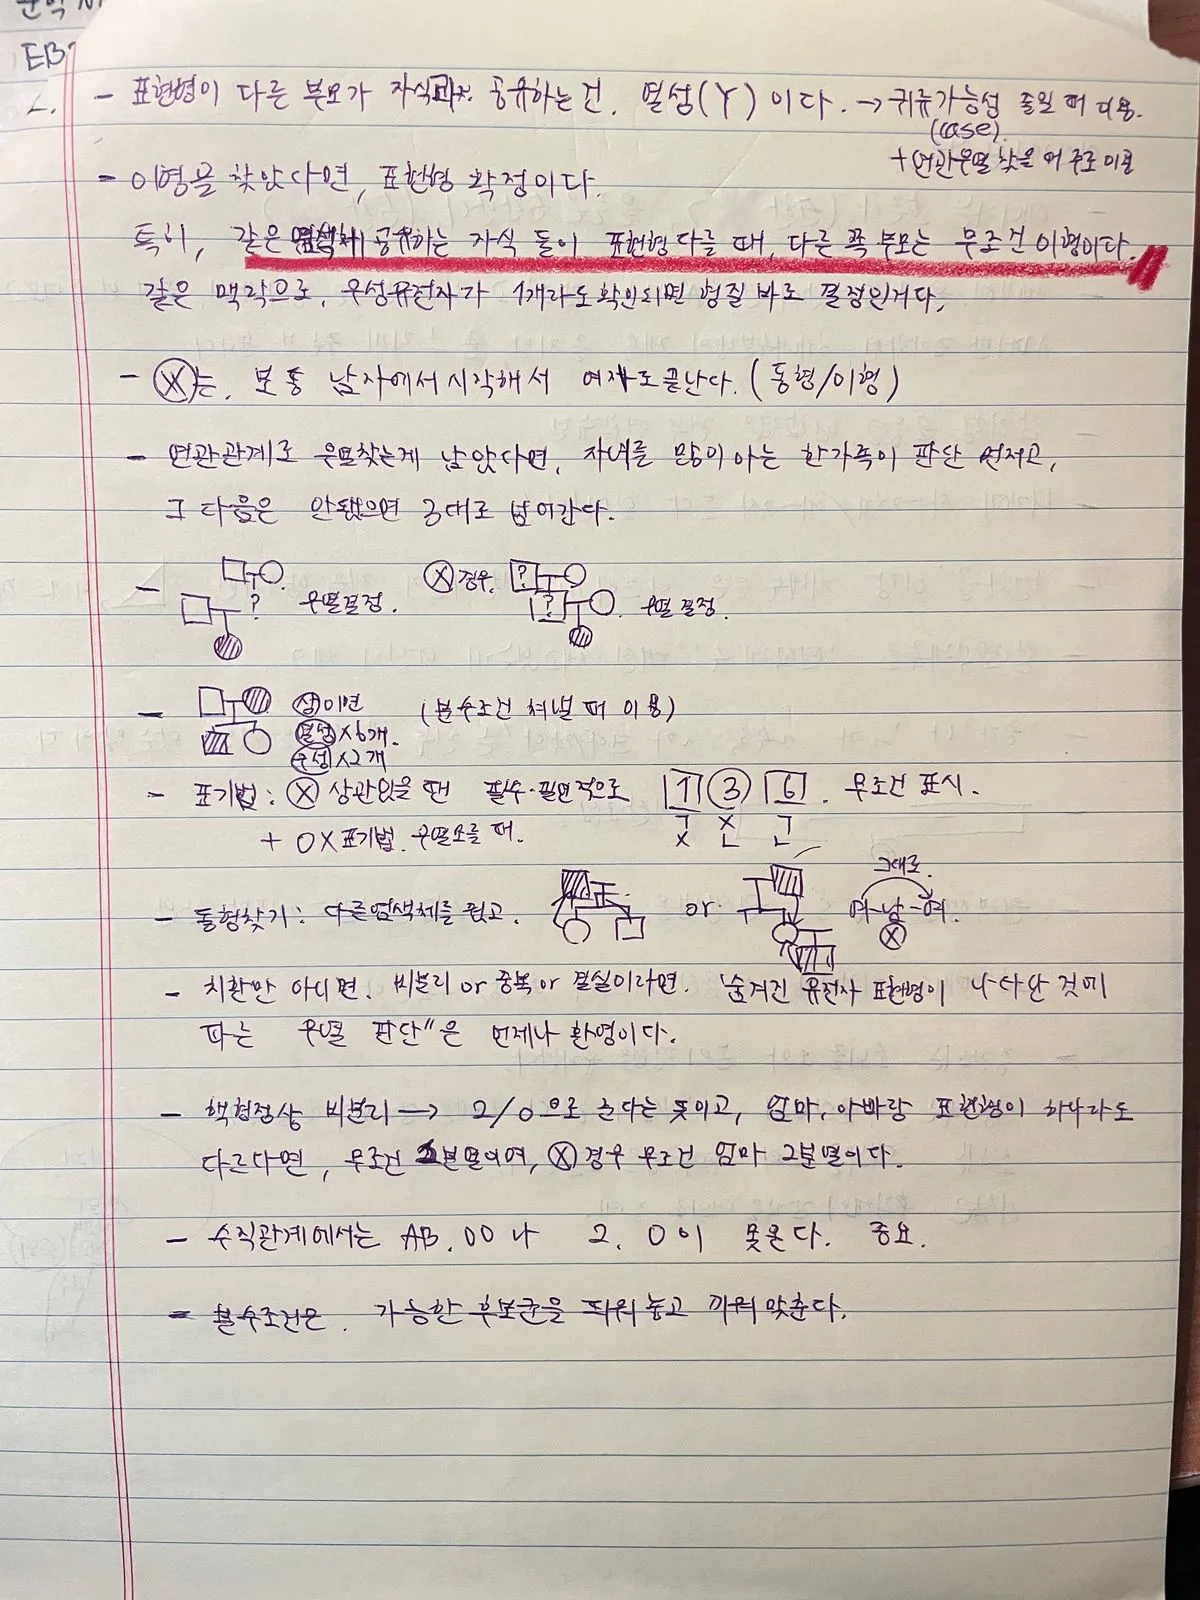 EB
- 표현형이 다른 부모가 자식과 공유하는건, 열성(Y)이다. → 귀류가능성 줄일 때 이용.
(case)
+ 연관우열 찾을 때 주로 이용
- 이형을 찾았다면, 표현형 확정이다.
특히, 같은 염색체 공유하는 자식 둘이 표현형 다를 때, 다른 쪽 부모는 무조건 이형이다.
같은 맥락으로, 우성유전자가 1개라도 확인되면 형질 바로 결정인거다.
- X는, 보통 남자에서 시작해서 여자로 끝난다. (동형/이형)
- 연관관계로 우열찾는게 남았다면, 자녀를 많이 아는 한가족이 판단 먼저고,
그 다음은 안됐으면 3대로 넘어간다.
- ? 우열결정. X 경우. ? ? 우열결정.
- 상이면 (분수조건 쳐낼 때 이용)
열성×6개.
우성×2개
- 표기법: X 상관있을 땐 필수·필연적으로 1 3 6. 무조건 표시.
ㄱ X ㄱ
+ OX표기법. 우열모를 때. X ㄴ ㄴ
그대로.
- 동형찾기: 다른염색체를 줬고. or. 여-남-여.
X
- 치환만 아니면. 비분리 or 중복 or 결실이라면. 숨겨진 유전자 표현형이 나타난 것에
따른 우열 판단"은 언제나 환영이다.
- 핵형정상 비분리 → 2/0으로 준다는 뜻이고, 엄마, 아빠랑 표현형이 하나라도
다르다면, 무조건 2분열이며, X 경우 무조건 엄마 2분열이다.
- 수직관계에서는 AB. OO나 2. 0이 못온다. 중요.
- 분수조건은. 가능한 후보군을 띄워놓고 끼워맞춘다.